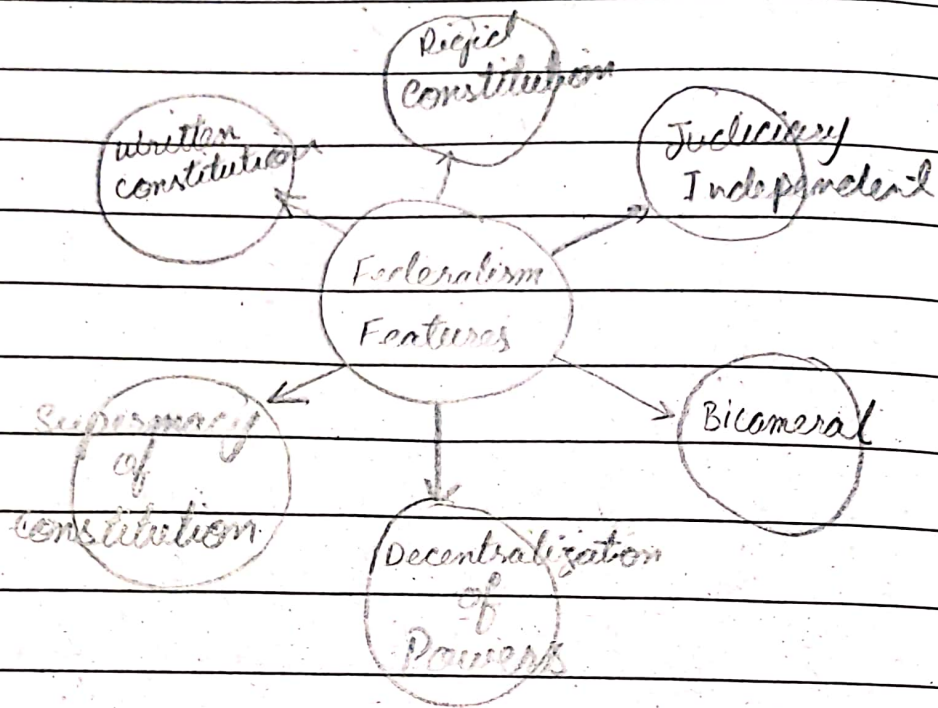 Rigid
Constitution
written
constitution
Judiciary
Independent
Federalism
Features
Supermacy
of
constitution.
Bicameral
Decentralization
of
Powers